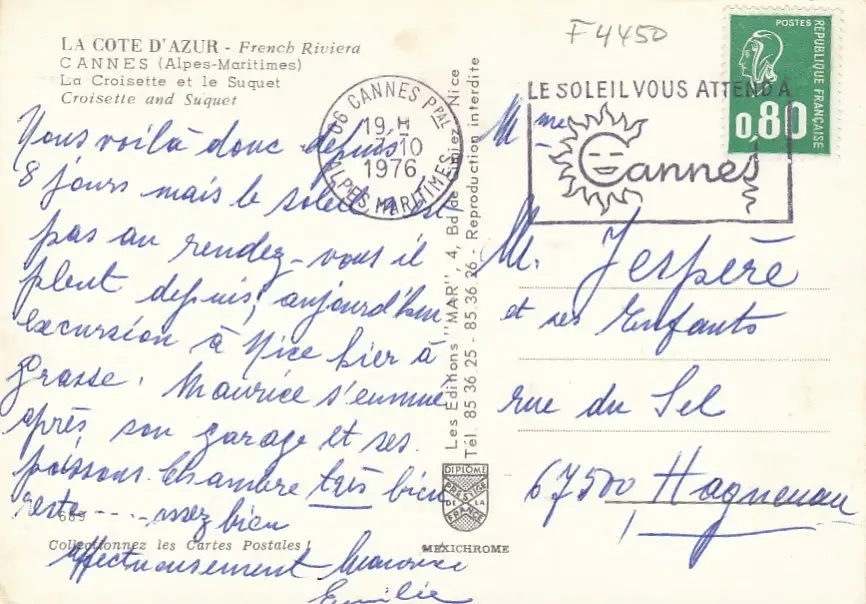 F4450
LA COTE D'AZUR - French Riviera
CANNES (Alpes-Maritimes)
La Croisette et le Suquet
Croisette and Suquet
Nous voilà donc depuis
8 jours mais le soleil n'est
pas au rendez-vous il
pleut depuis, aujourd'hui
excursion à Nice hier à
Grasse. Maurice s'ennuie
après son garage et ses
poissons. Chambre très bien
reste assez bien
689
Collectionnez les Cartes Postales !
Affectueusement Maurice
Emilie
06 CANNES PPAL
19 H
10
1976
ALPES MARITIMES
Les Editions "MAR", 4, Bd de Cimiez, Nice
Tél. 85 36 25 - 85.36.26 - Reproduction interdite
DIPLOME
PRESTIGE
DE LA
FRANCE
MEXICHROME
POSTES
REPUBLIQUE FRANÇAISE
0,80
LE SOLEIL VOUS ATTEND A
Cannes
Mme
M. Jespère
et ses Enfants
rue du Sel
67500 Haguenau